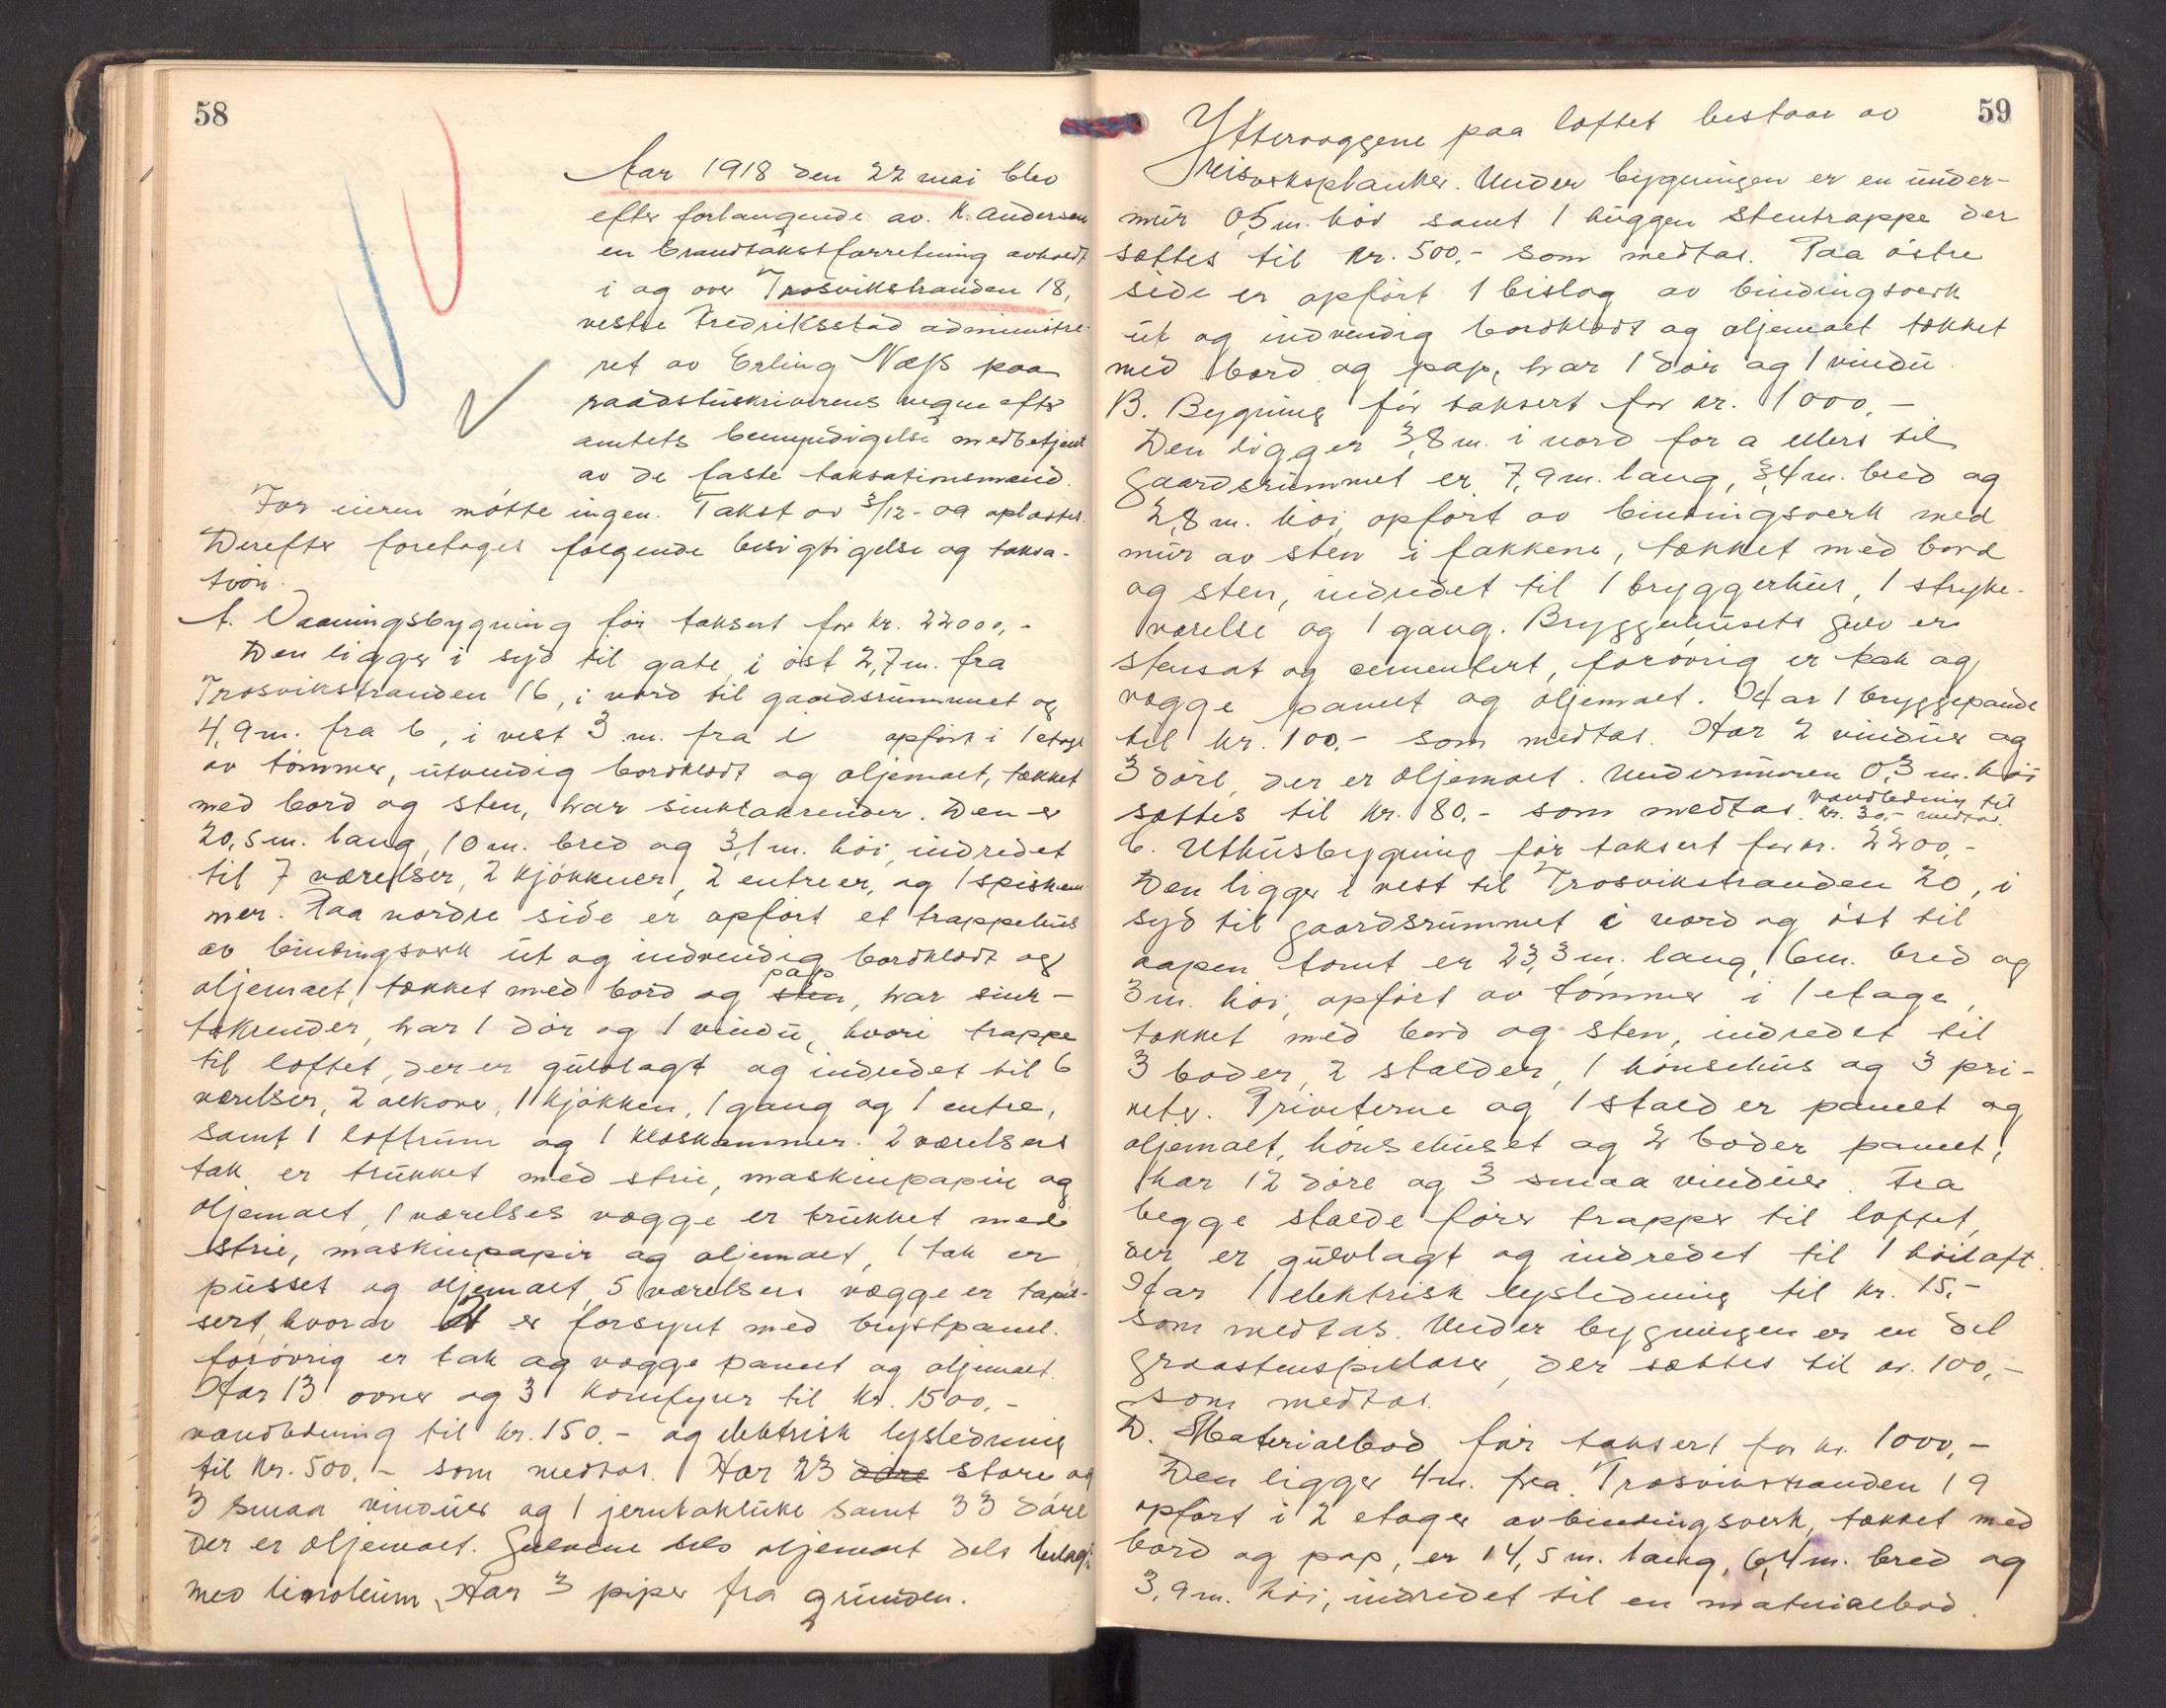 58
Aar 1918 den 22 mai blev
efter forlangende av K. Andersen
en brandtakstforretning avholdt
i og over Trosvikstranden 18,
vestre Fredriksstad administre-
ret av Erling Næss paa
raadstuskriverens vegne efter
amtets bemyndigelse medbetjent
av de faste taksationsmænd.
For inren møtte ingen. Takst av 3/12-09 oplæstes.
Derefter foretoges følgende besigtigelse og taksa-
tion.
A. Vaaningsbygning før taksert for kr. 22000,-
Den ligger i syd til gate, i øst 2,7 m. fra
Trosvikstranden 16, i nord til gaardsrummet og
4,9 m. fra b, i vest 3 m. fra i opført i 1 etage
av tømmer, utvendig bordklædt og oljemalt, tækket
med bord og sten, har sinktakrender. Den er
20,5 m. lang, 10 m. bred og 3,1 m. høi, indredet
til 7 værelser, 2 kjøkkener, 2 entreer, og 1 spiskam-
mer. Paa nordre side er opført et trappehus
av bindingsverk ut og indvendig bordklædt og
oljemalt, tækket med bord og sten pap, har sink-
takrender, har 1 dør og 1 vindu, hvori trappe
til loftet, der er gulvlagt og indredet til 6
værelser, 2 alkover, 1 kjøkken, 1 gang og 1 entre,
samt 1 loftrum og 1 klæskammer. 2 værelsers
tak er trukket med strie, maskinpapir og
oljemalt, 1 værelses vægge er trukket med
strie, maskinpapir og oljemalt, 1 tak er
pusset og oljemalt, 5 værelsers vægge er tapet-
sert, hvorav er forsynt med brystpanel.
forøvrig er tak og vægge panelt og oljemalt.
Har 13 ovner og 3 komfyrer til kr. 1500,-
vandledning til kr. 150.- og elektrisk lysledning
til kr. 500,- som medtas. Har 23 døre store og
3 smaa vinduer og 1 jerntakluke samt 33 døre
der er oljemalt. Gulvene dels oljemalt dels belagt
med linoleum. Har 3 piper fra grunden.
59
Ytterveggene paa loftet bestaar av
reisverksplanker. Under bygningen er en under-
mur 0,5 m. høi samt 1 huggen stentrappe der
sættes til kr. 500.- som medtas. Paa østre
side er opført 1 bislag av bindingsverk
ut og indvendig bordklædt og oljemalt tækket
med bord og pap, har 1 dør og 1 vindu.
B. Bygning før taksert for kr. 1000,-
Den ligger 3,8 m. i nord for a ellers til
gaardsrummet er 7,9 m. lang, 3,4 m. bred og
2,8 m. høi, opført av bindingsverk med
mur av sten i fakkene, tækket med bord
og sten, indredet til 1 bryggerhus, 1 stryke-
værelse og 1 gang. Bryggerhusets gulv er
stensat og cementert, forøvrig er tak og
vægge panelt og oljemalt. Har 1 bryggepande
til kr. 100.- som medtas. Har 2 vinduer og
3 døre, der er oljemalt. Undermuren 0,3 m. høi
sættes til kr. 80.- som medtas. vandledning til
kr. 30,- medtas.
C. Uthusbygning før taksert for kr. 2200,-
Den ligger i vest til Trosvikstranden 20, i
syd til gaardsrummet i nord og øst til
aapen tomt er 23,3 m. lang, 6 m. bred og
3 m. høi, opført av tømmer i 1 etage,
tækket med bord og sten, indredet til
3 boder, 2 stalder, 1 hønsehus og 3 pri-
veter. Priveterne og 1 stald er panelt og
oljemalt, hønsehuset og 2 boder panelt,
har 12 døre og 3 smaa vinduer. Fra
begge stalde fører trapper til loftet,
der er gulvlagt og indredet til 1 høiloft.
Har 1 elektrisk lysledning til kr. 15,-
som medtas. Under bygningen er en del
graastenspillarer, der sættes til kr. 100,-
som medtas.
D. Materialbod før taksert for kr. 1000,-
Den ligger 4 m. fra Trosvikstranden 19
opført i 2 etager av bindingsverk, tækket med
bord og pap, er 14,5 m. lang, 6,4 m. bred og
3,9 m. høi, indredet til en materialbod.